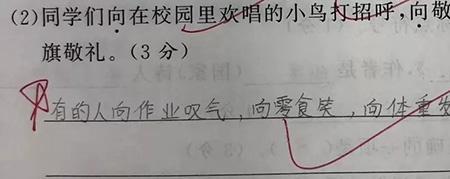 (2)同学们向在校园里欢唱的小鸟打招呼,向敬
旗敬礼。(3分)
有的人向作业叹气,向零食笑,向体重发